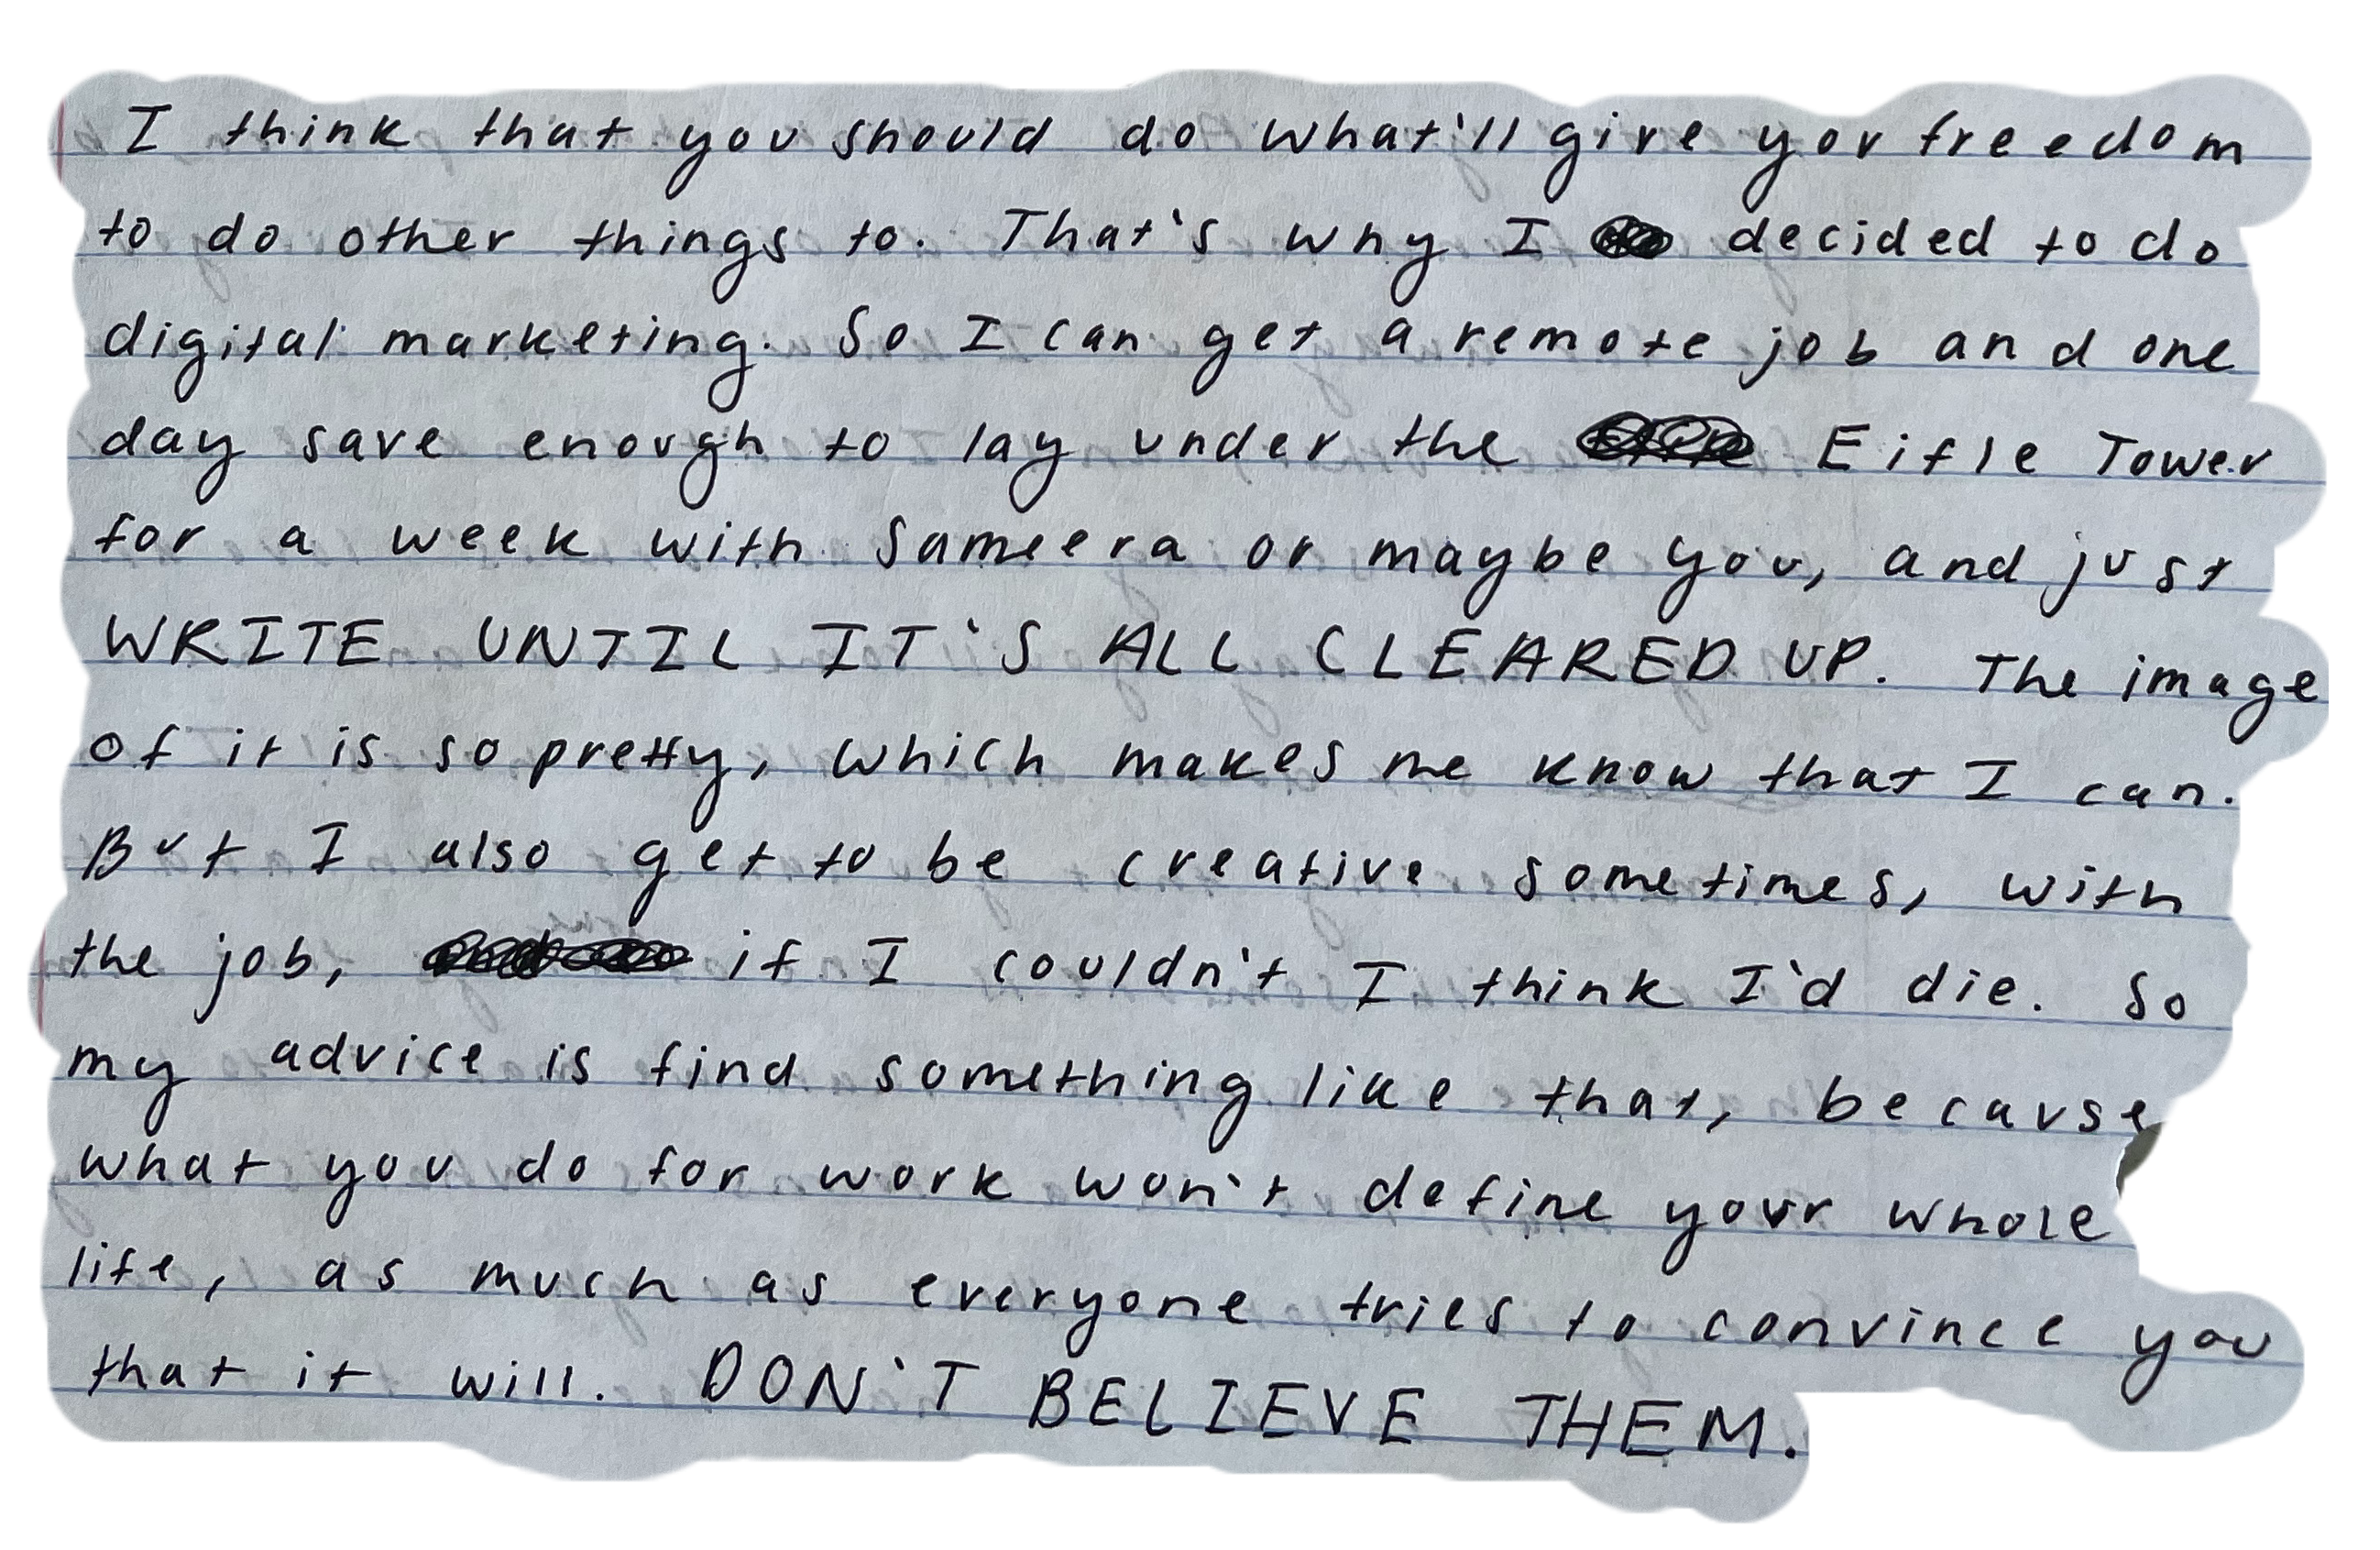 I think that you should do what'll give you freedom
to do other things to. That's why I decided to do
digital marketing. So I can get a remote job and one
day save enough to lay under the Eifle Tower
for a week with Sameera or maybe you, and just
WRITE UNTIL IT'S ALL CLEARED UP. The image
of it is so pretty, which makes me know that I can.
But I also get to be creative sometimes, with
the job, if I couldn't I think I'd die. So
my advice is find something like that, because
what you do for work won't define your whole
life, as much as everyone tries to convince you
that it will. DON'T BELIEVE THEM.